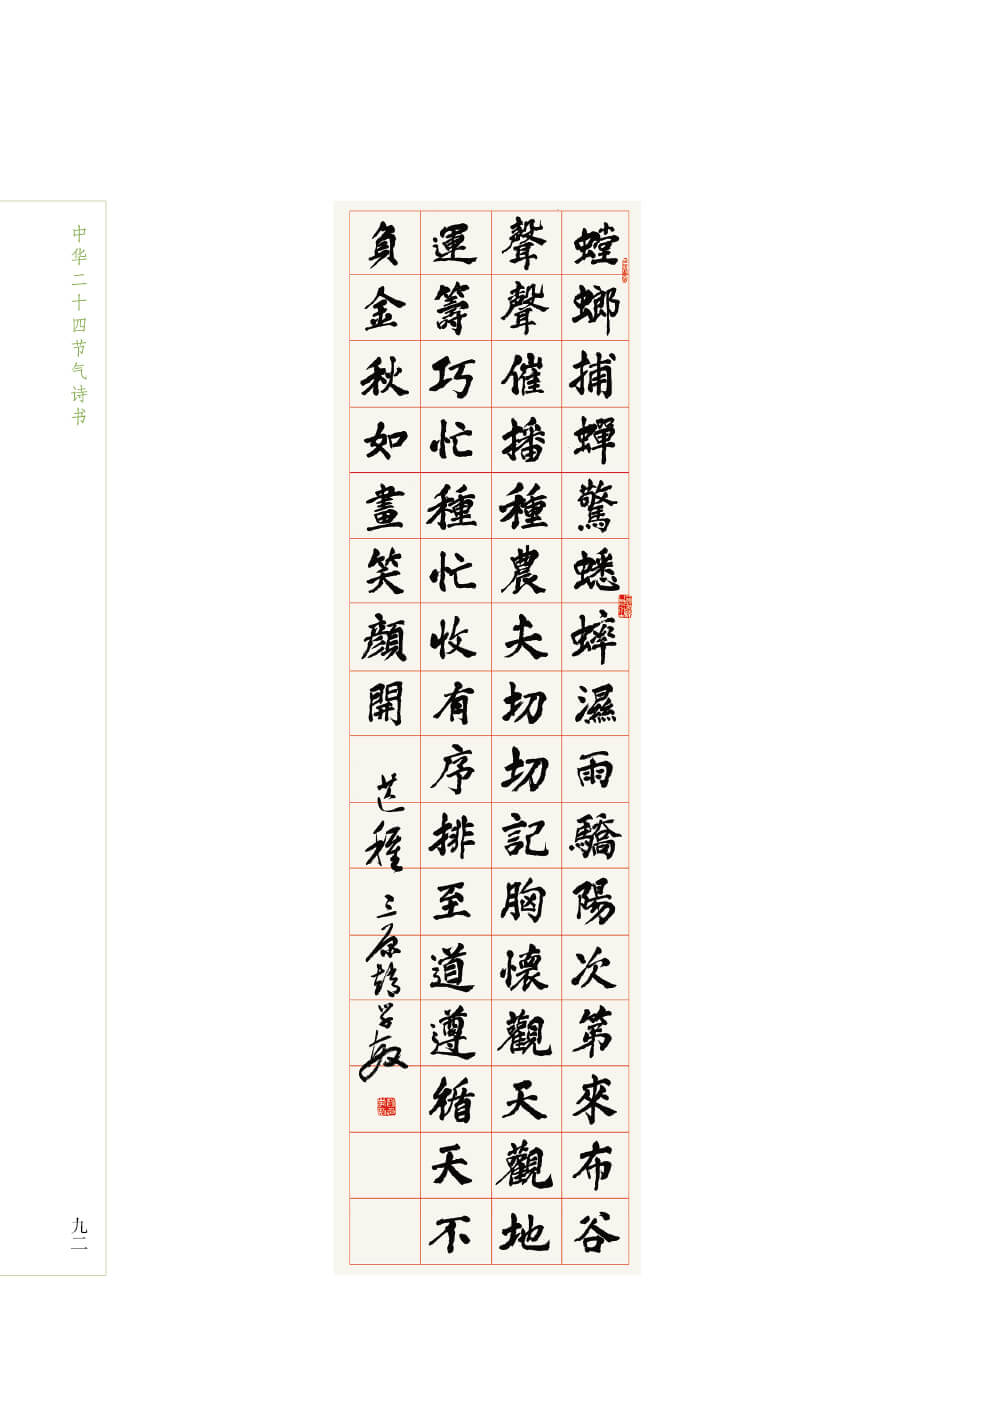 螳螂捕蟬驚蟋蟀濕雨驕陽次第來布谷
聲聲催播種農夫切切記胸懷觀天觀地
運籌巧忙種忙收有序排至道遵循天不
負金秋如畫笑顏開
芒種 三原趙学敏
中华二十四节气诗书
九二